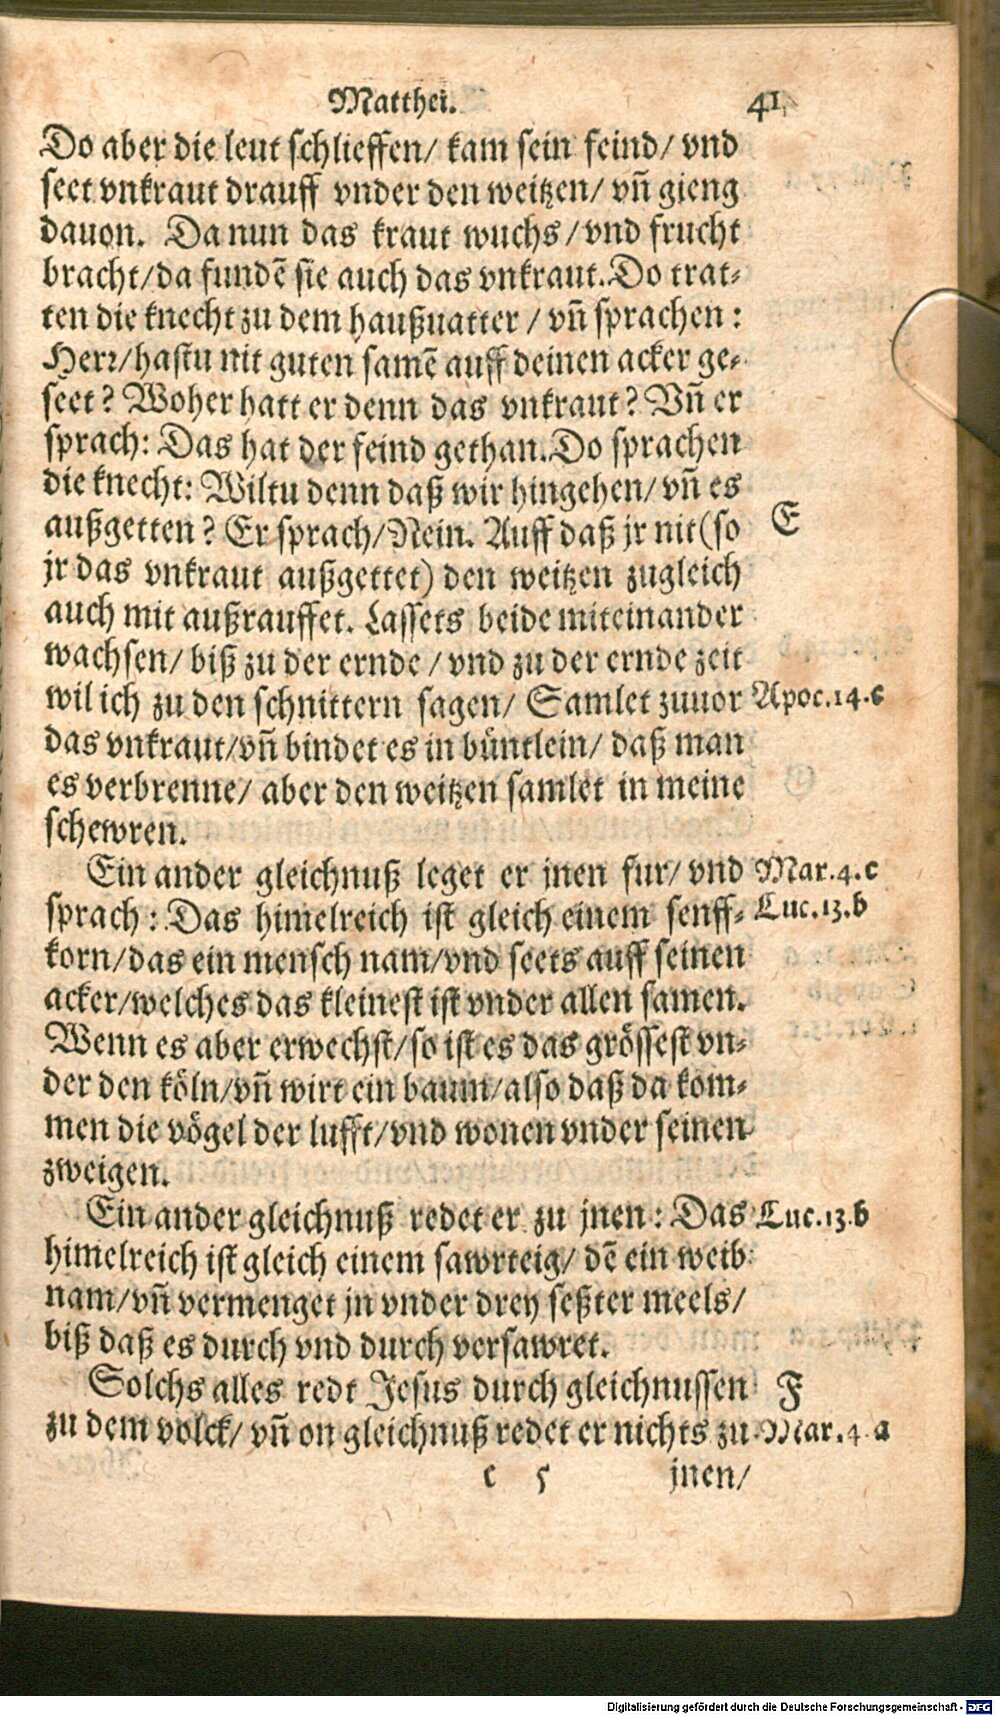 Matthei. 41
Do aber die leut schlieffen/ kam sein feind/ vnd
seet vnkraut drauff vnder den weitzen/ vñ gieng
dauon. Da nun das kraut wuchs/vnd frucht
bracht/da fundẽ sie auch das vnkraut. Do trat-
ten die knecht zu dem haußuatter/ vñ sprachen:
Herr/hastu nit guten samẽ auff deinen acker ge-
seet? Woher hatt er denn das vnkraut? Vñ er
sprach: Das hat der feind gethan. Do sprachen
die knecht: Wiltu denn daß wir hingehen/ vñ es
außgetten? Er sprach/Nein. Auff daß jr nit(so E
jr das vnkraut außgettet) den weitzen zugleich
auch mit außrauffet. Lassets beide miteinander
wachsen/ biß zu der ernde/ vnd zu der ernde zeit
wil ich zu den schnittern sagen/ Samlet zuuor Apoc.14.c
das vnkraut/vñ bindet es in büntlein/ daß man
es verbrenne/ aber den weitzen samlet in meine
schewren.
Ein ander gleichnuß leget er jnen fur/ vnd Mar.4.c
sprach: Das himelreich ist gleich einem senff- Luc.13.b
korn/das ein mensch nam/vnd seets auff seinen
acker/welches das kleinest ist vnder allen samen.
Wenn es aber erwechst/so ist es das grössest vn-
der den köln/vñ wirt ein baum/also daß da kom-
men die vögel der lufft/vnd wonen vnder seinen
zweigen.
Ein ander gleichnuß redet er zu jnen: Das Luc.13.b
himelreich ist gleich einem sawrteig/ dẽ ein weib
nam/vñ vermenget jn vnder drey seßter meels/
biß daß es durch vnd durch versawret.
Solchs alles redt Jesus durch gleichnussen F
zu dem volck/ vñ on gleichnuß redet er nichts zu Mar.4.a
c 5 jnen/
Digitalisierung gefördert durch die Deutsche Forschungsgemeinschaft - DFG